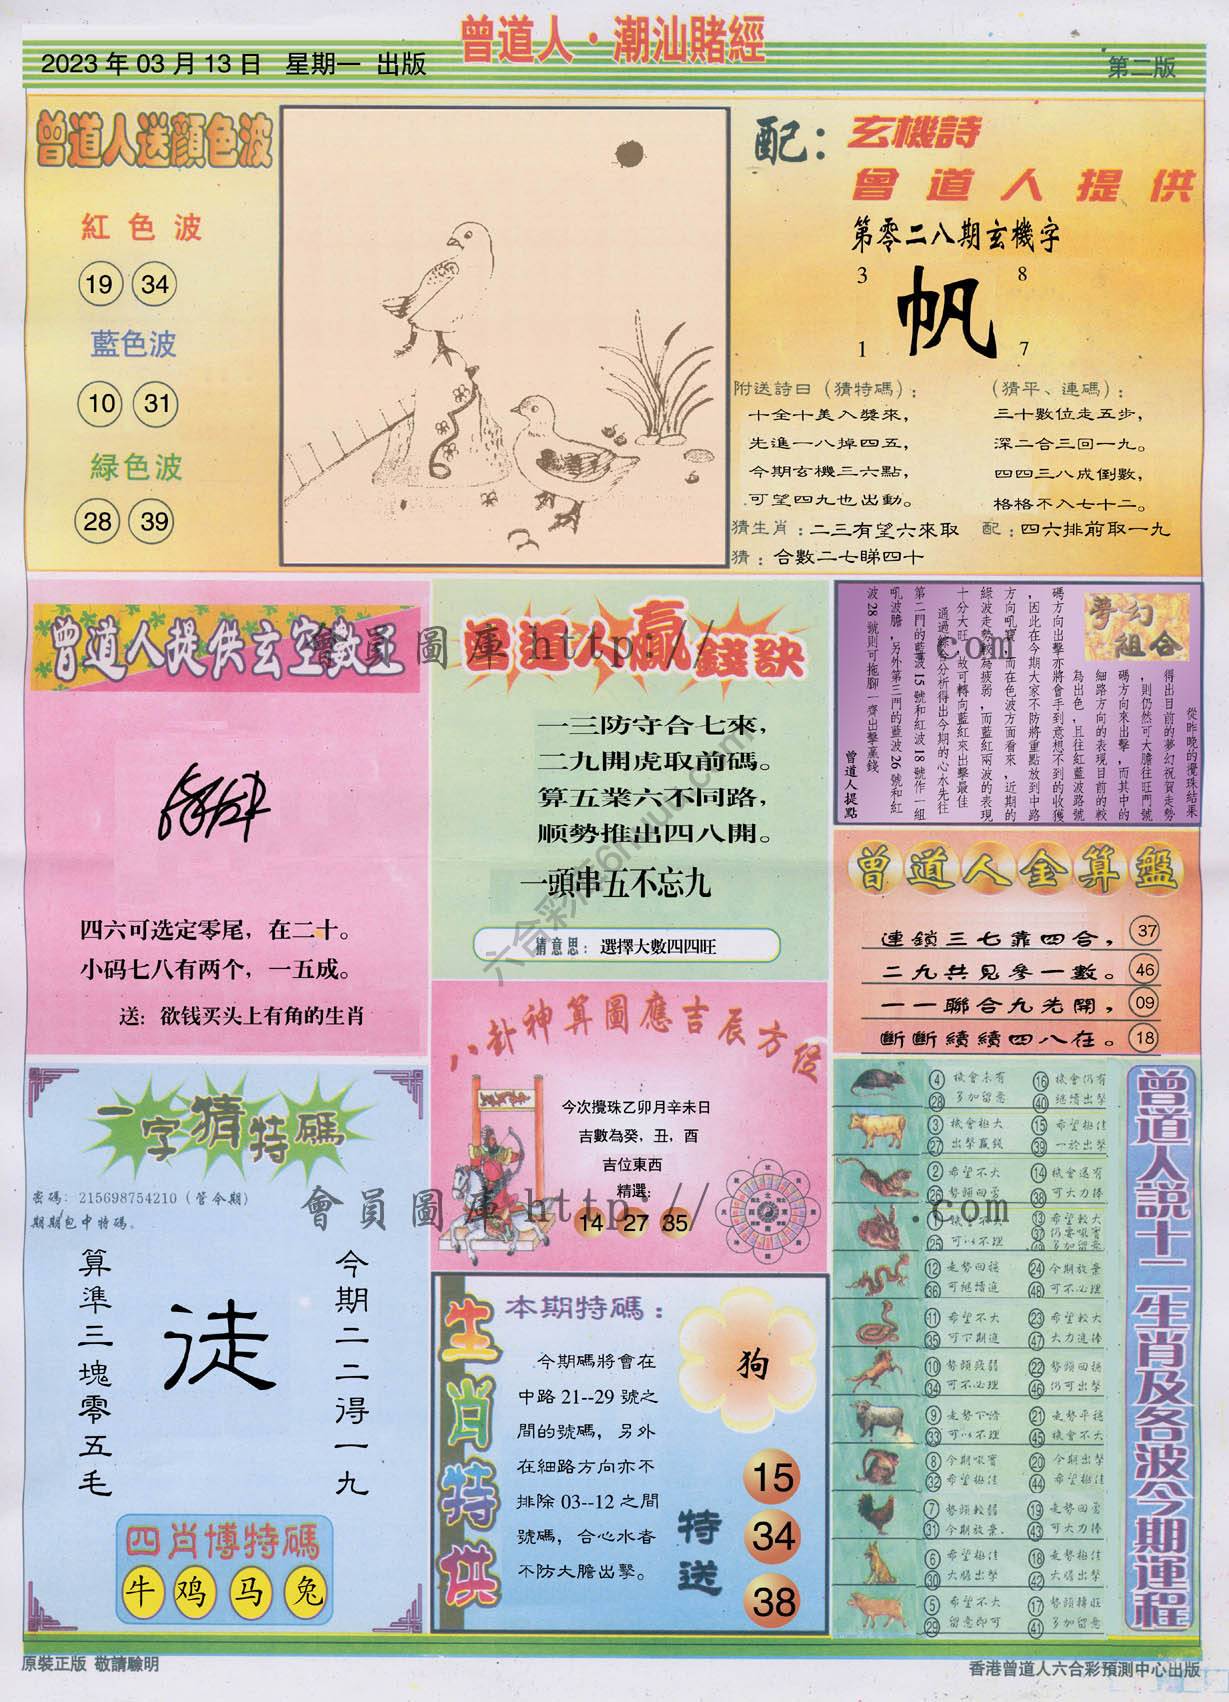 曾道人·潮汕賭經
2023年03月13日 星期一 出版
第二版
曾道人送顏色波
紅色波
19 34
藍色波
10 31
緑色波
28 39
配：
玄機詩
曾道人提供
第零二八期玄機字
3 8
帆
1 7
附送詩曰（猜特碼）：
十全十美入獎來，
先進一八掉四五，
今期玄機三六點，
可望四九也出動。
（猜平、連碼）：
三十數位走五步，
深二合三回一九。
四四三八成倒數，
格格不入七十二。
猜生肖：二三有望六來取
配：四六排前取一九
猜：合數二七睇四十
曾道人提供玄空數王
四六可选定零尾，在二十。
小码七八有两个，一五成。
送：欲钱买头上有角的生肖
曾道人贏錢訣
一三防守合七來，
二九開虎取前碼。
算五業六不同路，
顺勢推出四八開。
一頭串五不忘九
猜意思：選擇大數四四旺
夢幻
組合
從昨晚的攪珠結果
得出目前的夢幻祝賀走勢
，則仍然可大膽往旺門號
碼方向來出擊，而其中的
細路方向的表現目前的較
為出色，且往紅藍波路號
碼方向出擊亦將會手到意想不到的收獲
，因此在今期大家不防將重點放到中路
方向吼寶，而在色波方面看來，近期的
綠波走勢較為疲弱，而藍紅兩波的表現
十分大旺，故可轉向藍紅來出擊最佳
通過綜合分析得出今期的心水先往
第二門的藍波15號和紅波18號作一組
吼波膽，另外第三門的藍波26號和紅
波28號則可拖腳一齊出擊贏錢
曾道人提點
曾道人金算盤
連鎖三七靠四合，37
二九共見參一數。46
一一聯合九先開，09
斷斷續續四八在。18
八卦神算圖應吉辰方位
今次攪珠乙卯月辛未日
吉數為癸，丑，酉
吉位東西
精選：
14 27 35
一字猜特碼
密碼：215698754210（管今期）
期期包中特碼。
今期二二得一九
徒
算準三塊零五毛
四肖博特碼
牛 鸡 马 兔
生肖特供
本期特碼：
今期碼將會在
中路21--29號之
間的號碼，另外
在細路方向亦不
排除03--12之間
號碼，合心水者
不防大膽出擊。
狗
特送
15
34
38
曾道人説十二生肖及各波今期運程
4 28 機會未有 多加留意
16 40 機會仍有 繼續出擊
3 27 機會極大 出擊贏錢
15 39 希望極佳 一於出擊
2 26 希望不大 勢頭回勇
14 38 機會還有 可大力捧
1 25 機會不大 可以不理
13 37 49 希望較大 仍要吼實 多加留意
12 36 走勢回穩 可繼續追
24 48 今期放棄 可不必理
11 35 希望不大 可下期追
23 47 希望較大 大力追捧
10 34 勢頭疲弱 可不必理
22 46 勢頭回穩 仍可出擊
9 33 走勢下滑 可以不理
21 45 走勢平穩 機會不大
8 32 今期吼實 希望極佳
20 44 今期出擊 希望極佳
7 31 勢頭較弱 今期放棄
19 43 走勢回勇 可大力捧
6 30 希望極佳 大膽出擊
18 42 走勢極佳 大膽出擊
5 29 希望不大 留意即可
17 41 勢頭轉旺 多加留意
原裝正版 敬請驗明
香港曾道人六合彩預測中心出版
會員圖庫 http:// .com
會員圖庫 http:// .com